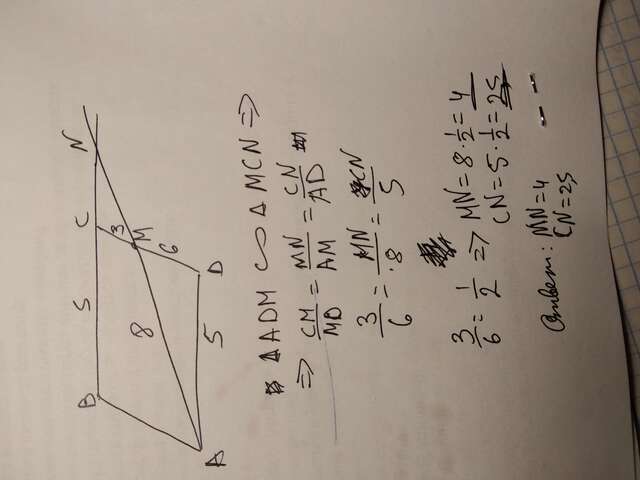 B 5 C N
3
M
8 6
A 5 D
△ADM ∽ △MCN ⇒
⇒ CM/MD = MN/AM = CN/AD
3/6 = MN/8 = CN/5
3/6 = 1/2 ⇒ MN = 8 · 1/2 = 4
CN = 5 · 1/2 = 25
Ответ: MN = 4
CN = 25